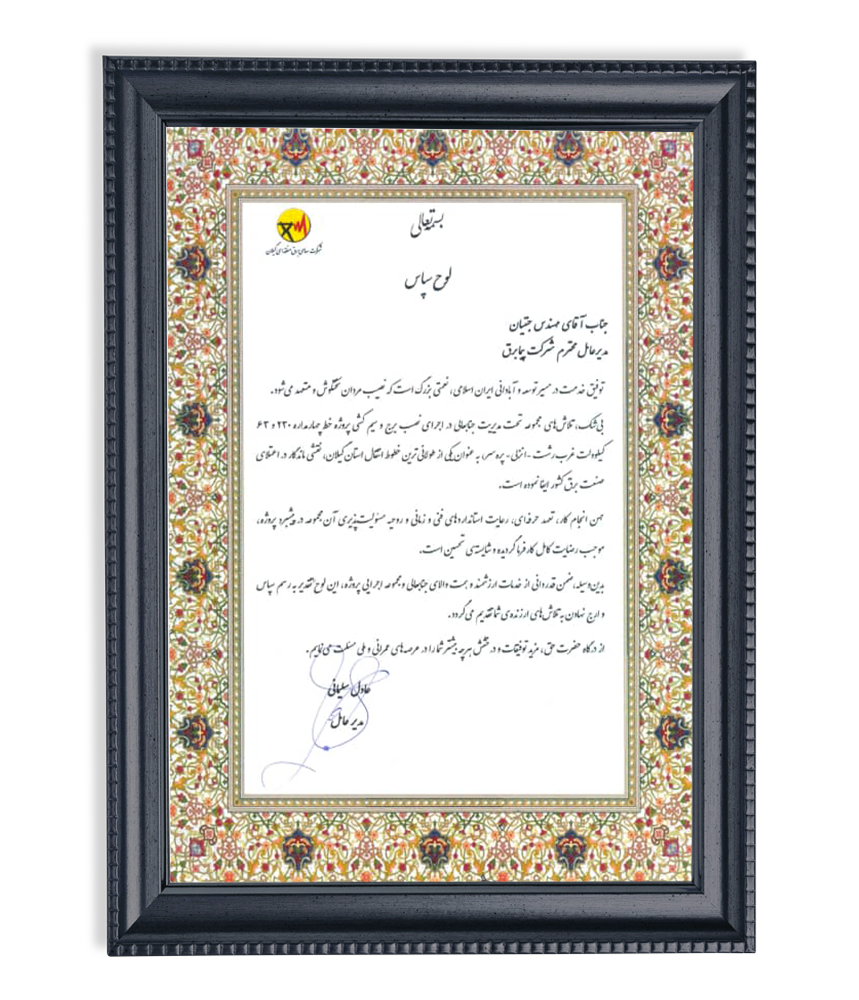 بسمه‌تعالی
شرکت سهامی برق منطقه‌ای گیلان
لوح سپاس
جناب آقای مهندس
مدیرعامل محترم شرکت پیمابرق
توفیق خدمت در مسیر توسعه و آبادانی ایران اسلامی، نعمتی بزرگ است که نصیب مردان سختکوش و متعهد می‌شود.
بی‌شک، تلاش‌های مجموعه تحت مدیریت جنابعالی در اجرای نصب برج و سیم کشی پروژه خط چهارمداره ۲۳۰ و ۶۳
کیلوولت غرب رشت - انزلی - پره سر، به عنوان یکی از طولانی ترین خطوط انتقال استان گیلان، نقشی ماندگار در اعتلای
صنعت برق کشور ایفا نموده است.
حسن انجام کار، تعهد حرفه‌ای، رعایت استانداردهای فنی و زمانی و روحیه مسئولیت‌پذیری آن مجموعه در پیشبرد پروژه،
موجب رضایت کامل کارفرما گردیده و شایسته‌ی تحسین است.
بدین‌وسیله، ضمن قدردانی از خدمات ارزشمند و همت والای جنابعالی و مجموعه اجرایی پروژه، این لوح تقدیر به رسم سپاس
و ارج نهادن به تلاش‌های ارزنده‌ی شما تقدیم می‌گردد.
از درگاه حضرت حق، مزید توفیقات و درخشش هرچه بیشتر شما را در عرصه‌های عمرانی و ملی مسئلت می‌نمایم.
عادل سلیمانی
مدیر عامل